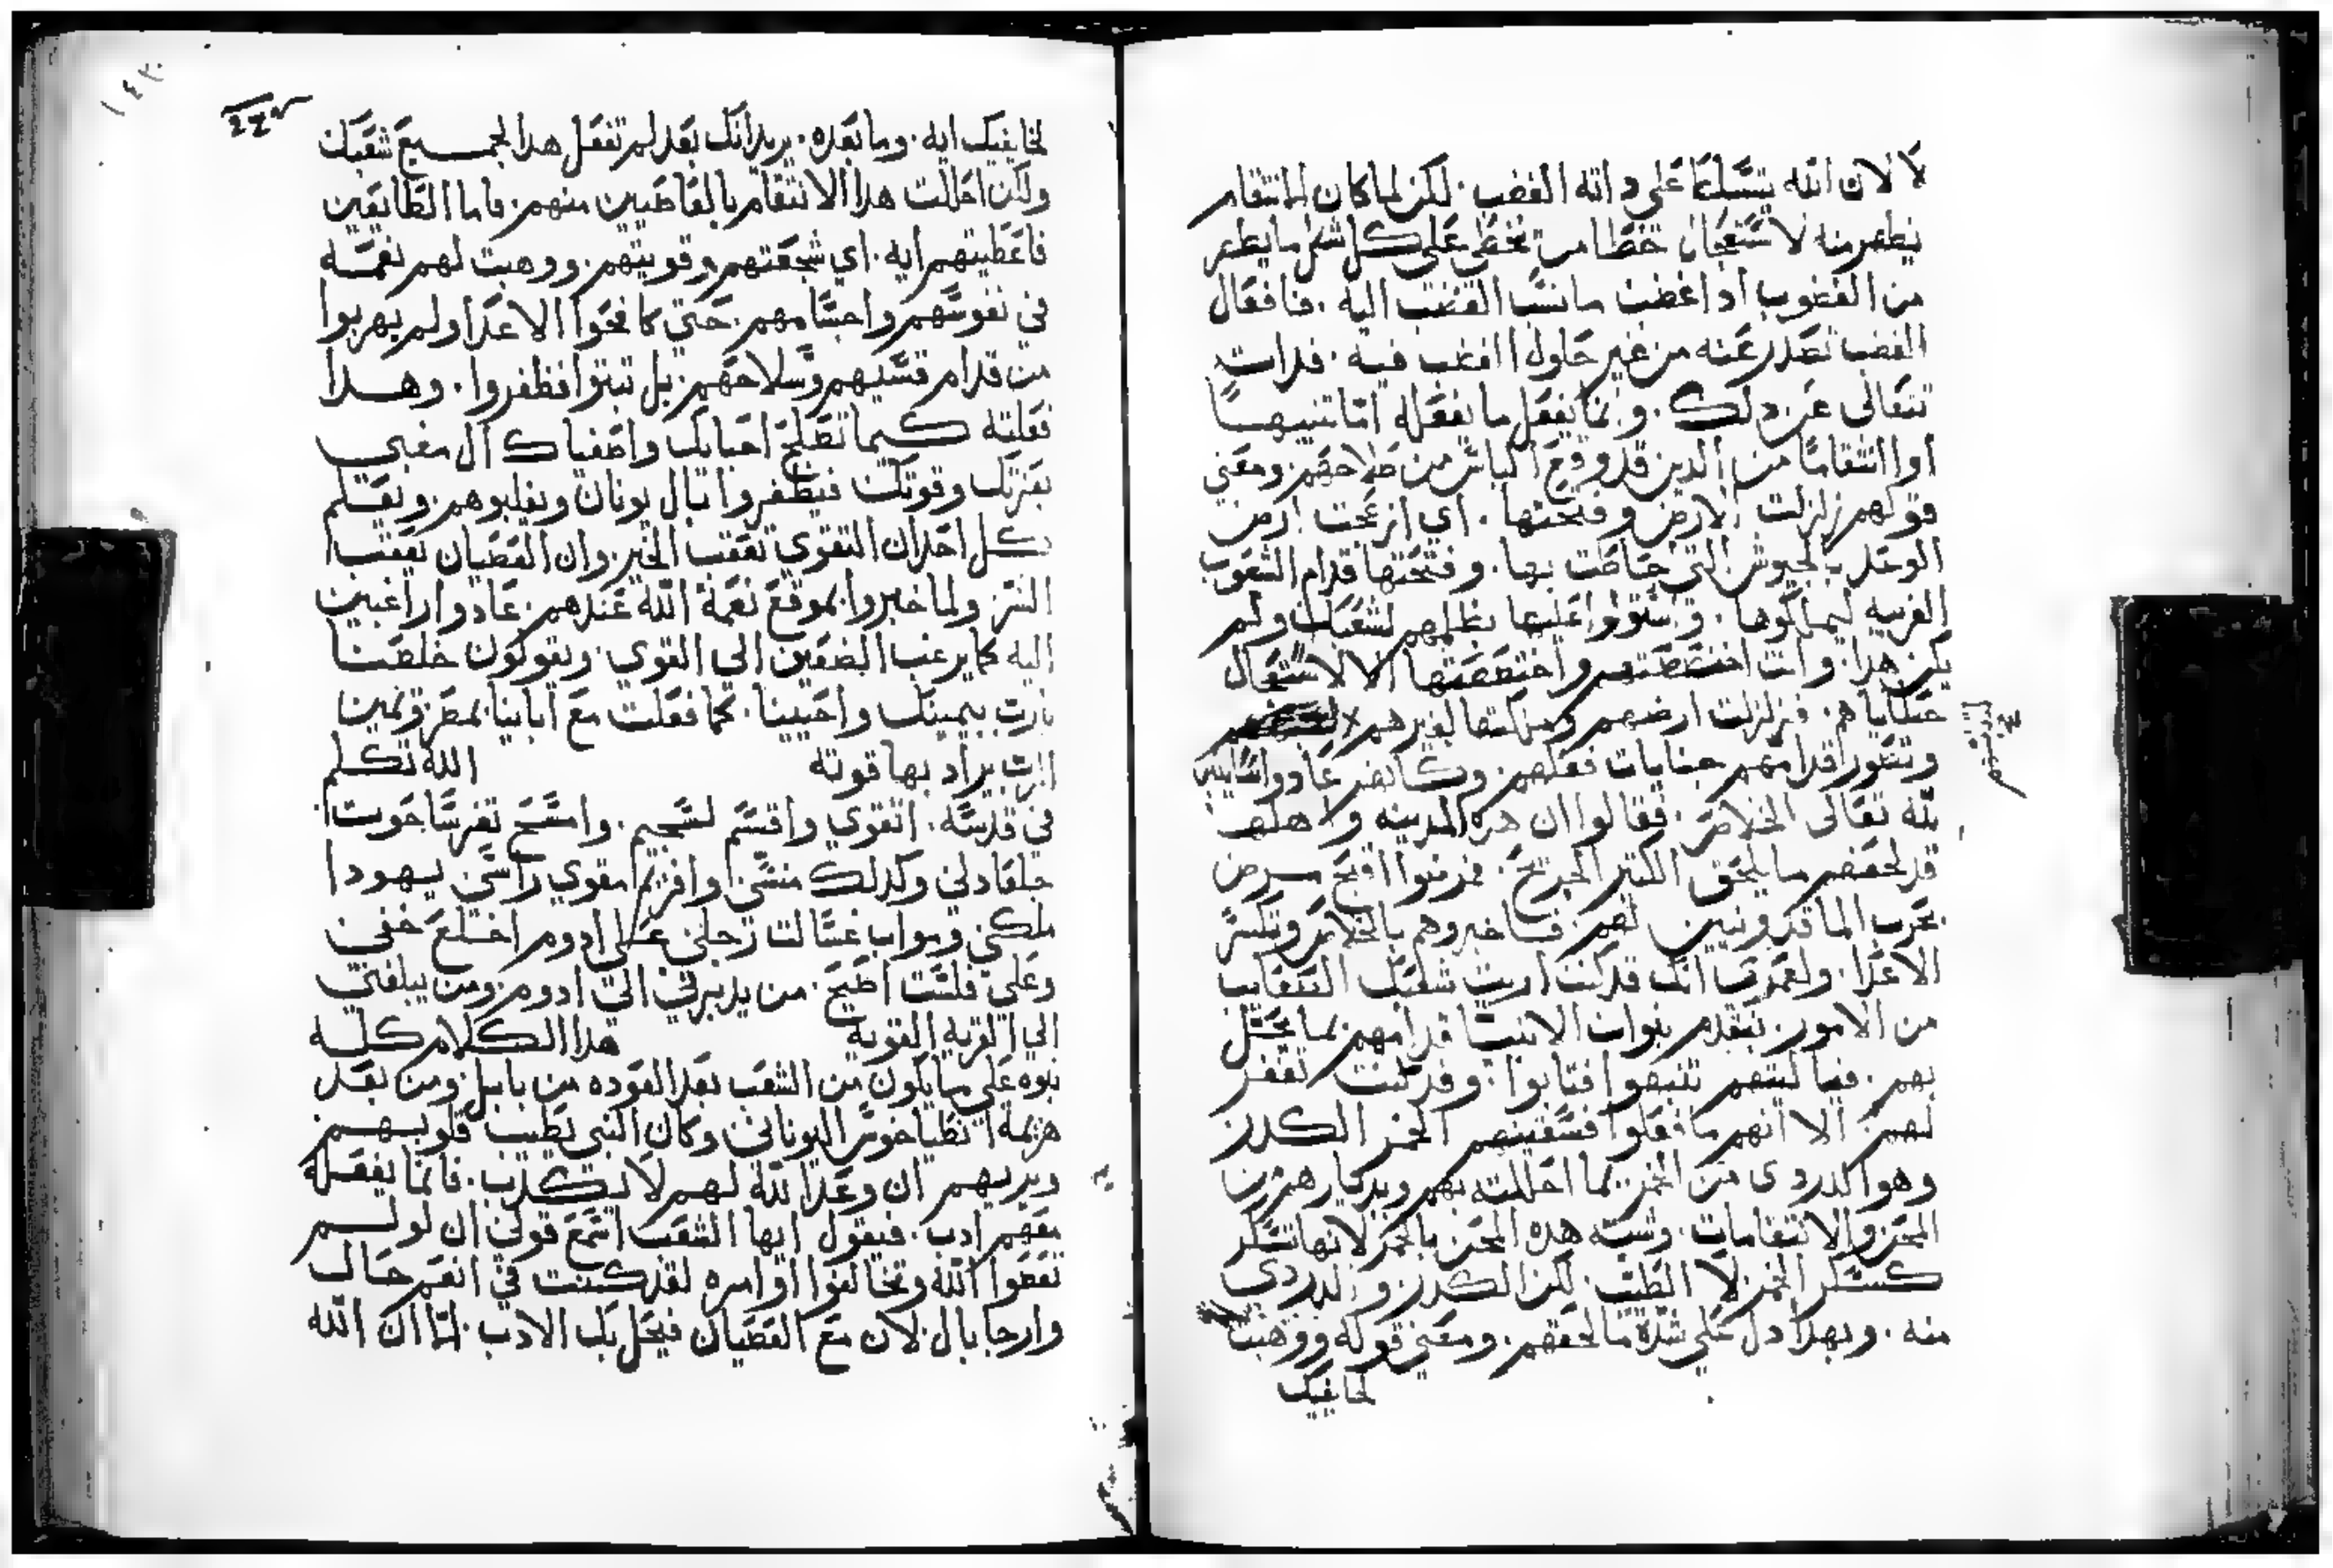 لا لان الله يتسلط على داته الغضب. لكن لما كان الانتقام
يظهر منه لاستعجال خطا من تخطي على كل شكل ما يظهر
من الغضوب اد اغضب ما نسب الغضب اليه. فافعال
الغضب تصدر عنه من غير حلول الغضب فيه. فداته
تتعالى عن دلك. وانما يفعل ما يفعله اما تنبيها
او انتقاما من الدين قد وقع الياس من صلاحهم. ومعني
قولهم زلزلت الارض وفتحتها. اي ازعجت ارض
الوعد بالجيوش التي احاطت بها. وفتحتها قدام الشعوب
الغريبه ليملكوها. واستولوا عليها بظلمهم لشعبك ولم
يكن هدا. وانت اختصصتهم واختصصتها الا لاستعجال
خطاياهم. فزلزلت ارضهم وملكتها لغيرهم
وتتصور قدامهم جنايات فعلهم. وكانهم عادوا سايلين
لله تعالى الخلاص. فقالوا ان هده المدينه واهلها
قد لحقهم ما يلحق الكسر الجريح. فمرضوا اقبح مرض
بحرب الماقدونيين لهم. فاخبروهم بالخلاص وبكسر
الاعدا. ولعمري انك قد كنت اريت شعبك الصعاب
من الامور. بتقدم بنوات الانبيا قدامهم بما يحل
بهم. فيا ليتهم تنبهوا فتابوا. وقد كنت تغفر
لهم. الا انهم ما فعلوا فسقيتهم الخمر الكدر
وهو الدردي من الخمر بما احللته بهم وبديارهم من
المحن والانتقامات. وشبه هده المحن بالخمر لانها تسكر
كسكر الخمر لا الطيب. لكن الكدر والدردي
منه. وبهدا دل على شدة ما لحقهم. ومعني قوله ووهبت
لخايفيك
لخايفيك ايه. وما بعده. يريد انك بعد لم تفعل هدا لجميع شعبك
ولكن احللت هدا الانتقام بالعاصيين منهم. فاما الطايعين
فاعطيتهم ايه. اي شجعتهم وقويتهم. ووهبت لهم نعمه
في نفوسهم واجسامهم. حتي كافحوا الاعدا ولم يهربوا
من قدام قسيهم وسلاحهم. بل تبتوا فظفروا. وهدا
فعلته كيما تصلح احبابك واصفياك ال مغبي
بعزتك وقوتك فيظفروا بال يونان ويغلبوهم. ويعلم
كل احد ان التقوي تعقب الخير. وان العصيان تعقب
الشر. ولما خبروا بموقع نعمة الله عندهم. عادوا راغبين
اليه كما يرغب الضعين الي القوي. ويقولون خلصنا
يارب بيمينك واحيينا. كما فعلت مع ابايينا بمصر. ويمين
الرب يراد بها قوته الله تكلم
في قدسه. اتقوي واقسم لشجيم. وامسح تفرسا حوت
جلعاد لي وكدلك منسي وافريم مقوي راسي يهودا
ملكي ومواب غسالت رجلي على ادوم اخلع خفي
وعلي فلشت اصيح. من يدبرني الى ادوم. ومن يبلغني
الي القريه القويه هدا الكلام كله
بنوه على ما يكون من الشعب بعد العوده من بابل. ومن بعد
هزيمة انطياخوس اليوناني وكان النبي يطيب قلوبهم
ويريهم ان وعد الله لهم لا يكدب. فانما يفعله
معهم ادب. فيقول ايها الشعب اسمع قولي ان لو لم
تعصوا الله وتخالفوا اوامره لقد كنت في انعم حال
وارخا بال. لان مع العصيان فيحل بك الادب. اما ان الله